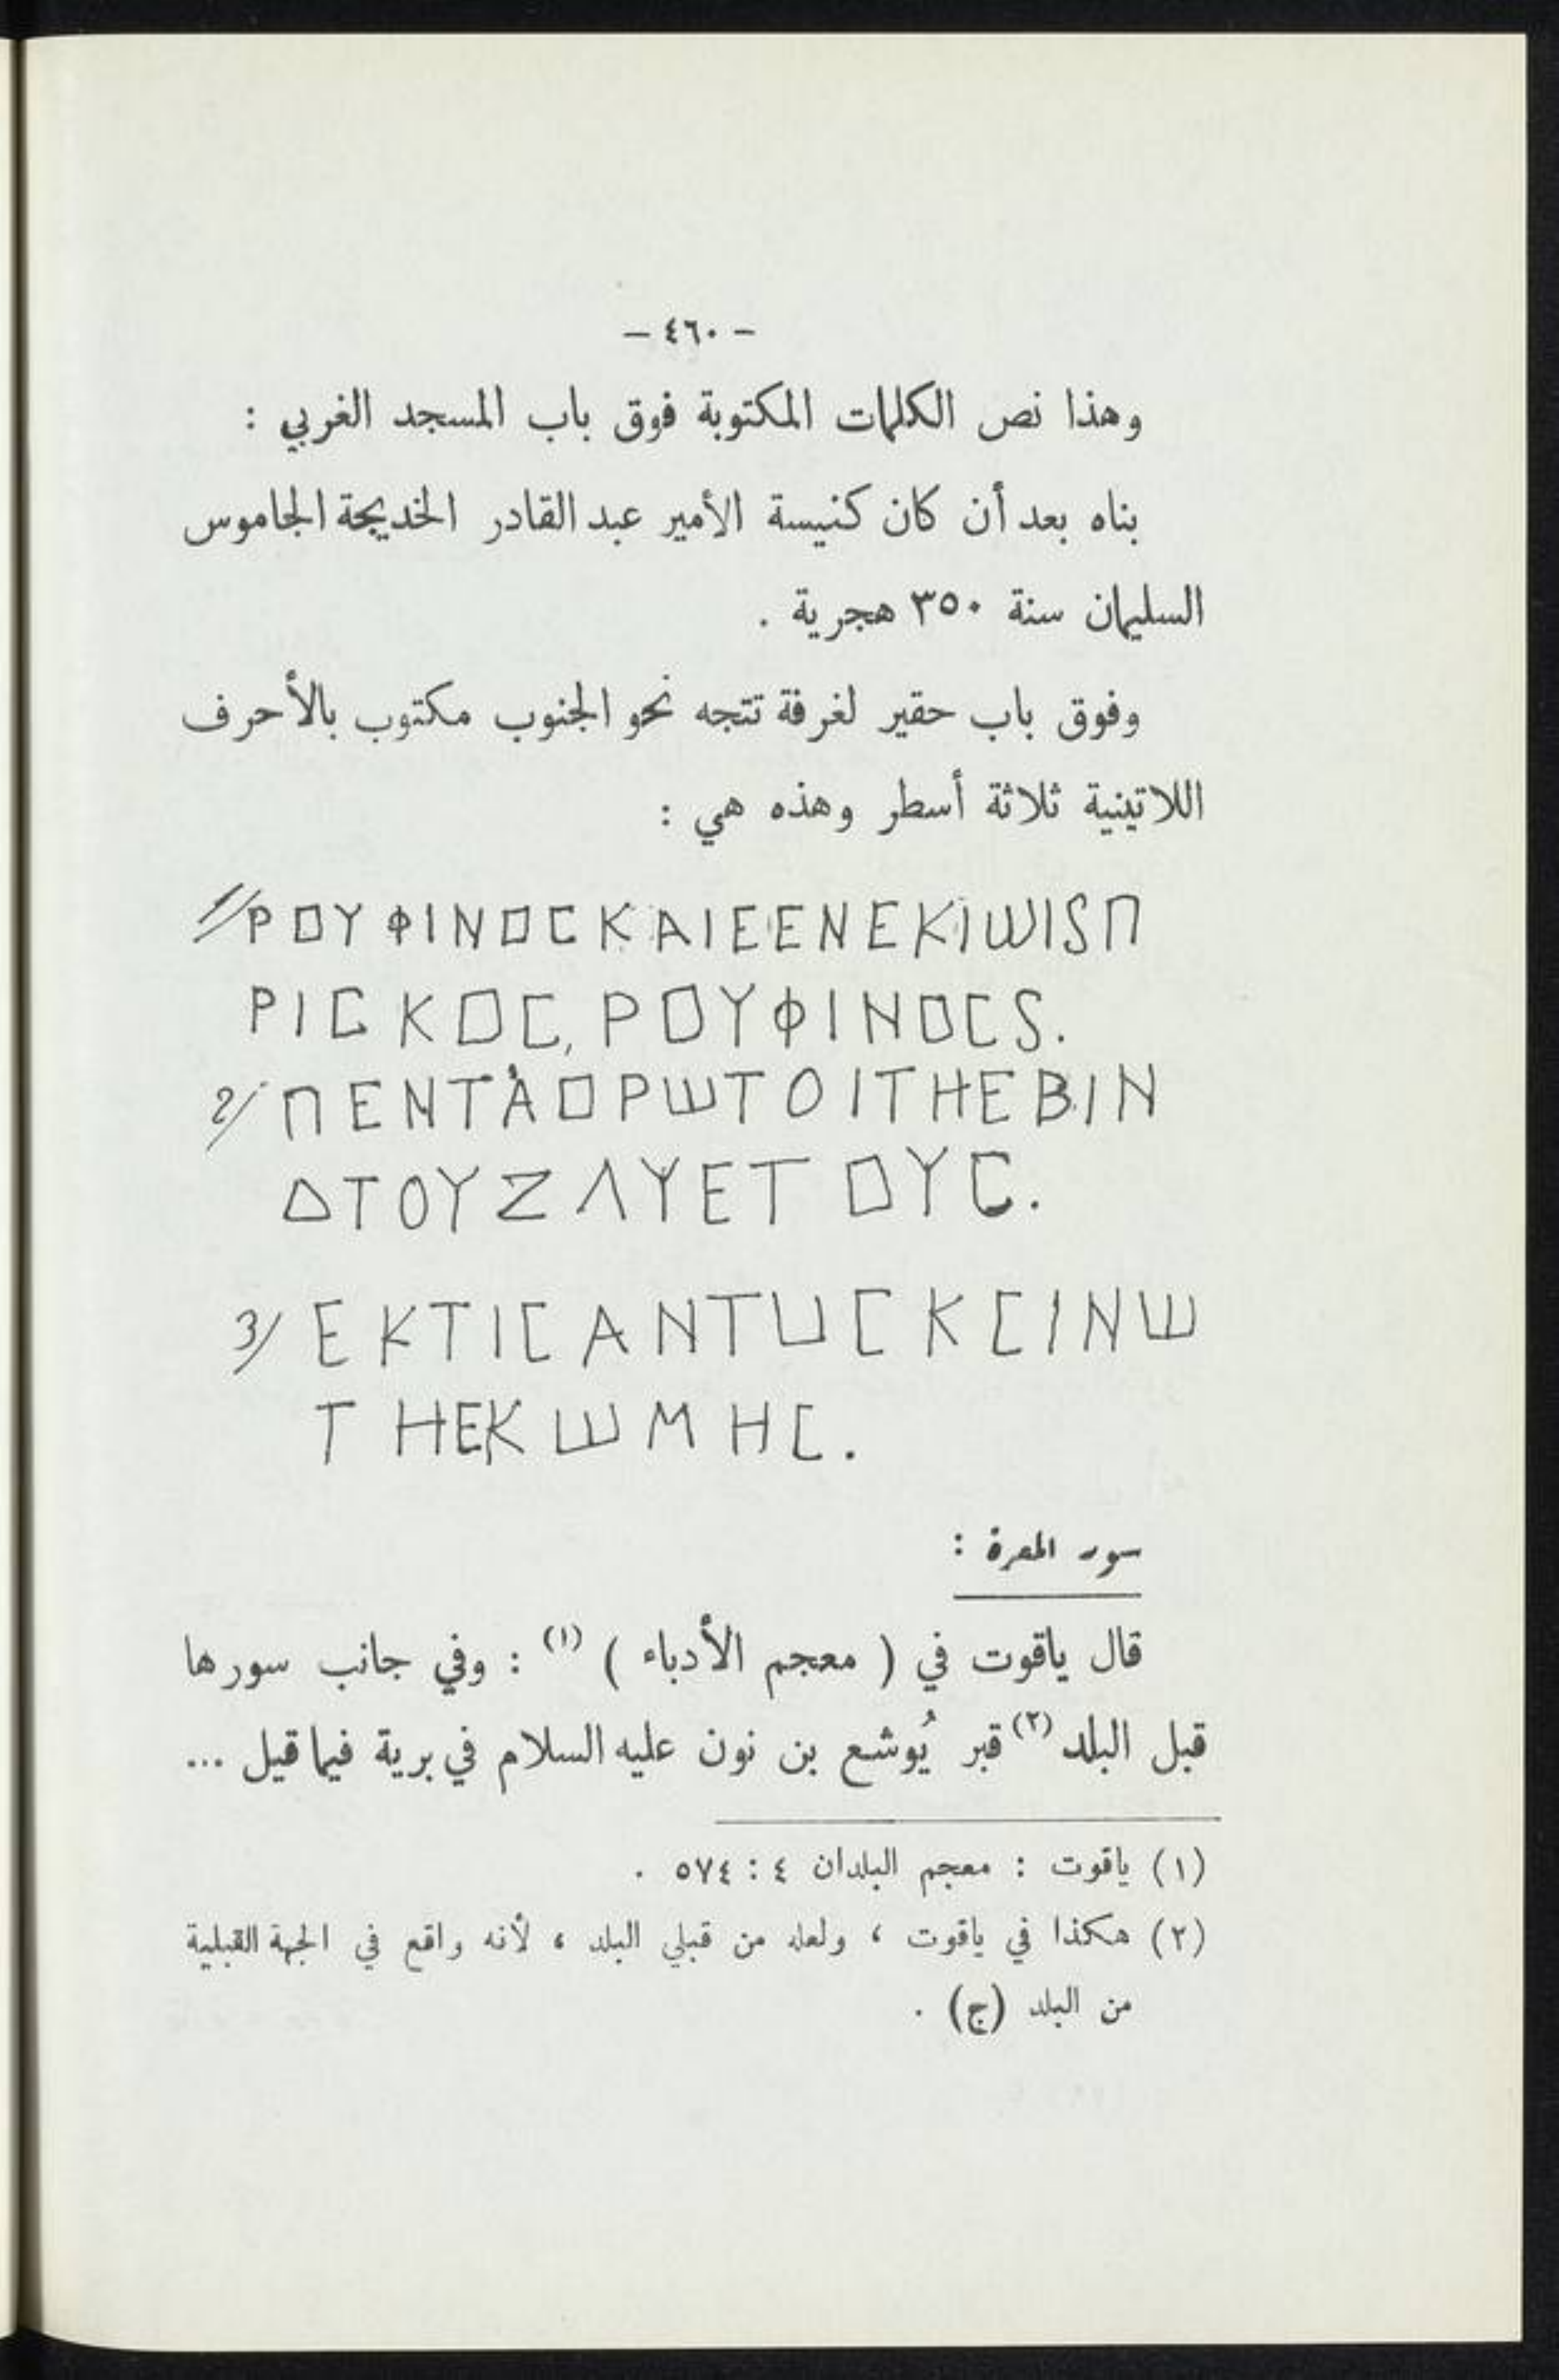 - ٤٦٠ -
وهذا نص الكلمات المكتوبة فوق باب المسجد الغربي :
بناه بعد أن كان كنيسة الأمير عبد القادر الخديجة الجاموس
السليمان سنة ٣٥٠ هجرية .
وفوق باب حقير لغرفة تتجه نحو الجنوب مكتوب بالأحرف
اللاتينية ثلاثة أسطر وهذه هي :
1/ ΡΟΥΦΙΝΟCΚΑΙΕΕΝΕΚΙШΙSΠ
ΡΙCΚΟC, ΡΟΥΦΙΝΟCS.
2/ ΠΕΝΤΑΟΡШΤΟΙΤΗΕΒΙΝ
ΔΤΟΥΖΛΥΕΤΟΥC.
3/ ΕΚΤΙCΑΝΤUCΚCΙΝШ
ΤΗΕΚШΜΗC.
سور المعرة :
قال ياقوت في ( معجم الأدباء ) (١) : وفي جانب سورها
قبل البلد (٢) قبر يُوشع بن نون عليه السلام في برية فيما قيل ...
(١) ياقوت : معجم البلدان ٤ : ٥٧٤ .
(٢) هكذا في ياقوت ، ولعله من قبلي البلد ، لأنه واقع في الجهة القبلية
من البلد (ج) .